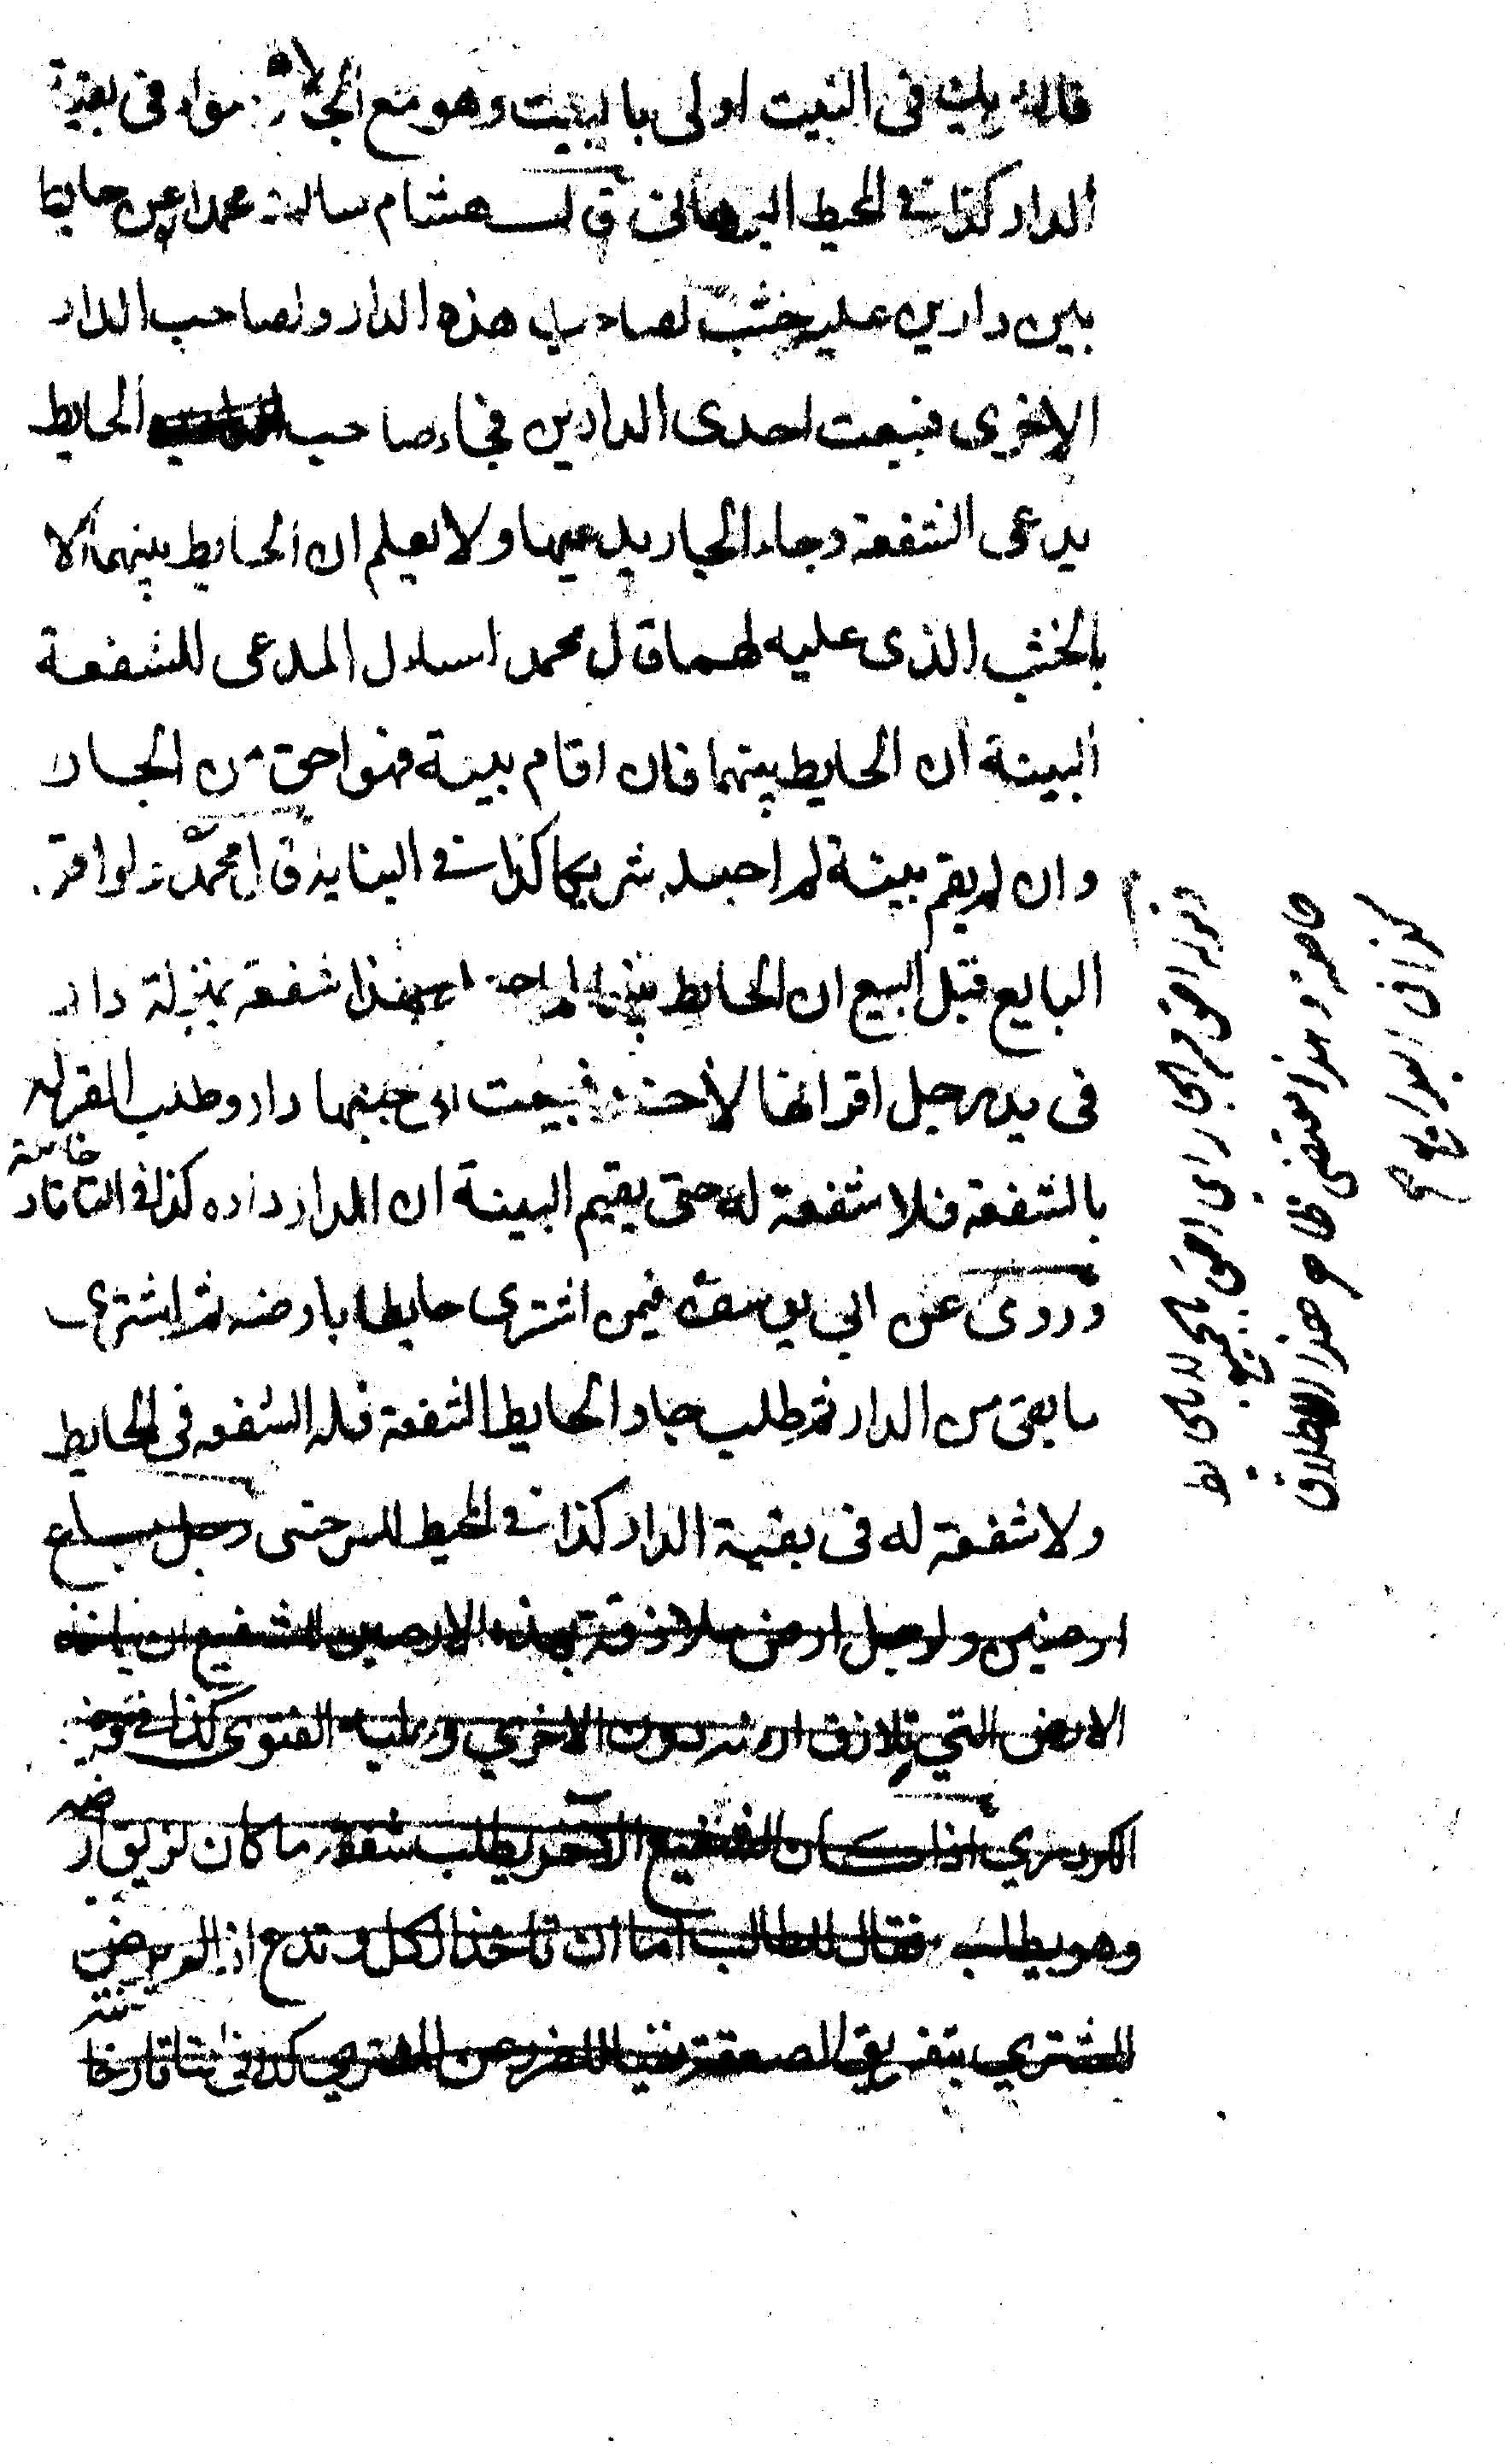 فالشريك فى البيت اولى بالبيت وهو مع الجار سواء فى بقية
الدار كذا فى المحيط البرهانى قال هشام سالت محمدا عن حايط
بين دارين عليه خشب لصاحب هذه الدار ولصاحب الدار
الاخرى فبيعت احدى الدارين فجاء صاحب الحايط
يدعى الشفعة وجاء الجار يدعيها ولا يعلم ان الحايط بينهما الا
بالخشب الذى عليه لهما قال محمد اسأل المدعى للشفعة
البينة ان الحايط بينهما فان اقام بينة فهو احق من الجار
وان لم يقم بينة لم اجعله شريكا كذا فى البنايه قال محمد ولو اقر
البايع قبل البيع ان الحايط بينهما لم اجعل بهذا شفعة بمنزلة دار
فى يد رجل اقر انها لأخر فبيعت الى جنبها دار وطلب المقر له
بالشفعة فلا شفعة له حتى يقيم البينة ان الدار داره كذا فى التاتار
خانية
وروى عن ابى يوسف فيمن اشترى حايطا بارضه ثم اشترى
ما بقى من الدار ثم طلب جار الحايط الشفعة فله الشفعه فى الحايط
ولا شفعة له فى بقية الدار كذا فى المحيط للسرخسى رجل باع
ارضين ولرجل ارض ملازقة بهذه الارضين للشفيع ان ياخذ
الارض التي تلازق ارضه دون الاخري وعليه الفتوى كذا فى
الكردري اذا كان الشفيع الاخر يطلب شفعة ما كان لزيق ارضه
وهو يطلب فقال للطالب اما ان تاخذ الكل وتدع اذا لم يرض
المشتري بتفريق الصفقة نفيا للضرر عن المشتري كذا فى تتاتارخا
نية
خاصة وهذا
كذا فى البدايع